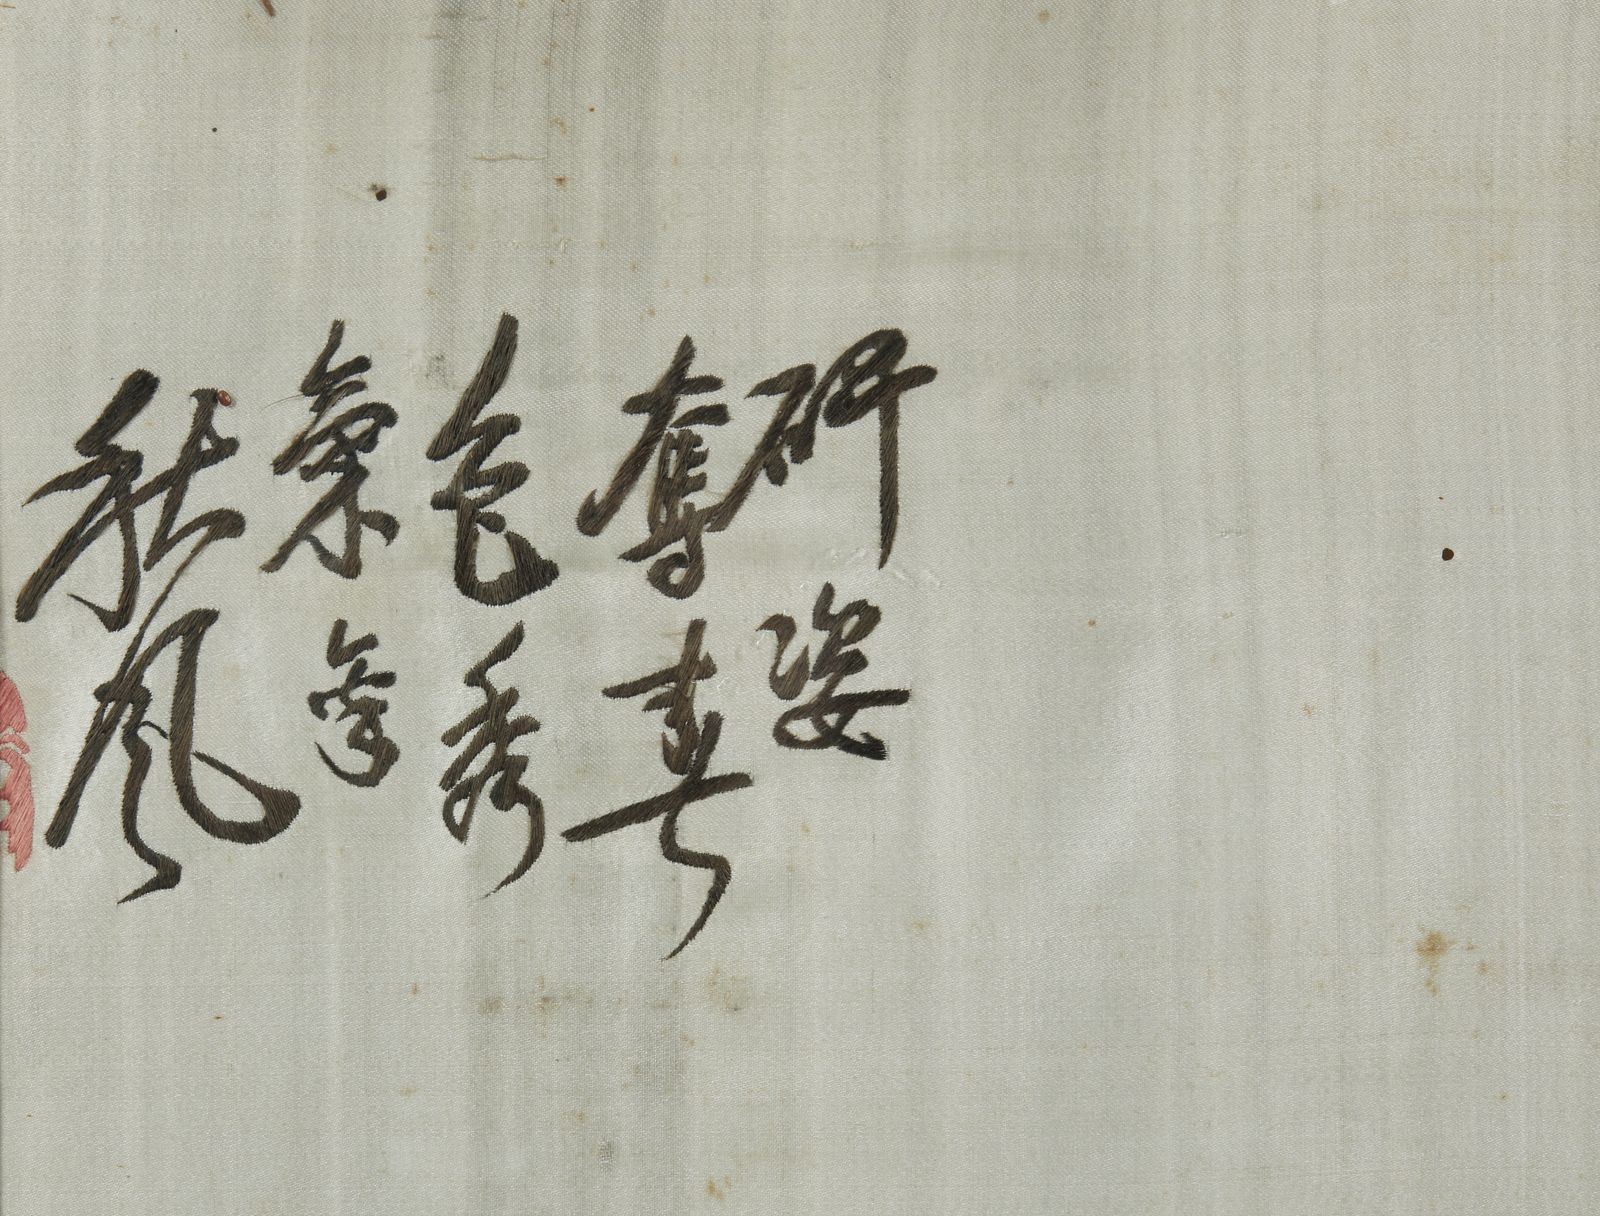 研姿
奪春
色秀
氣含
秋風